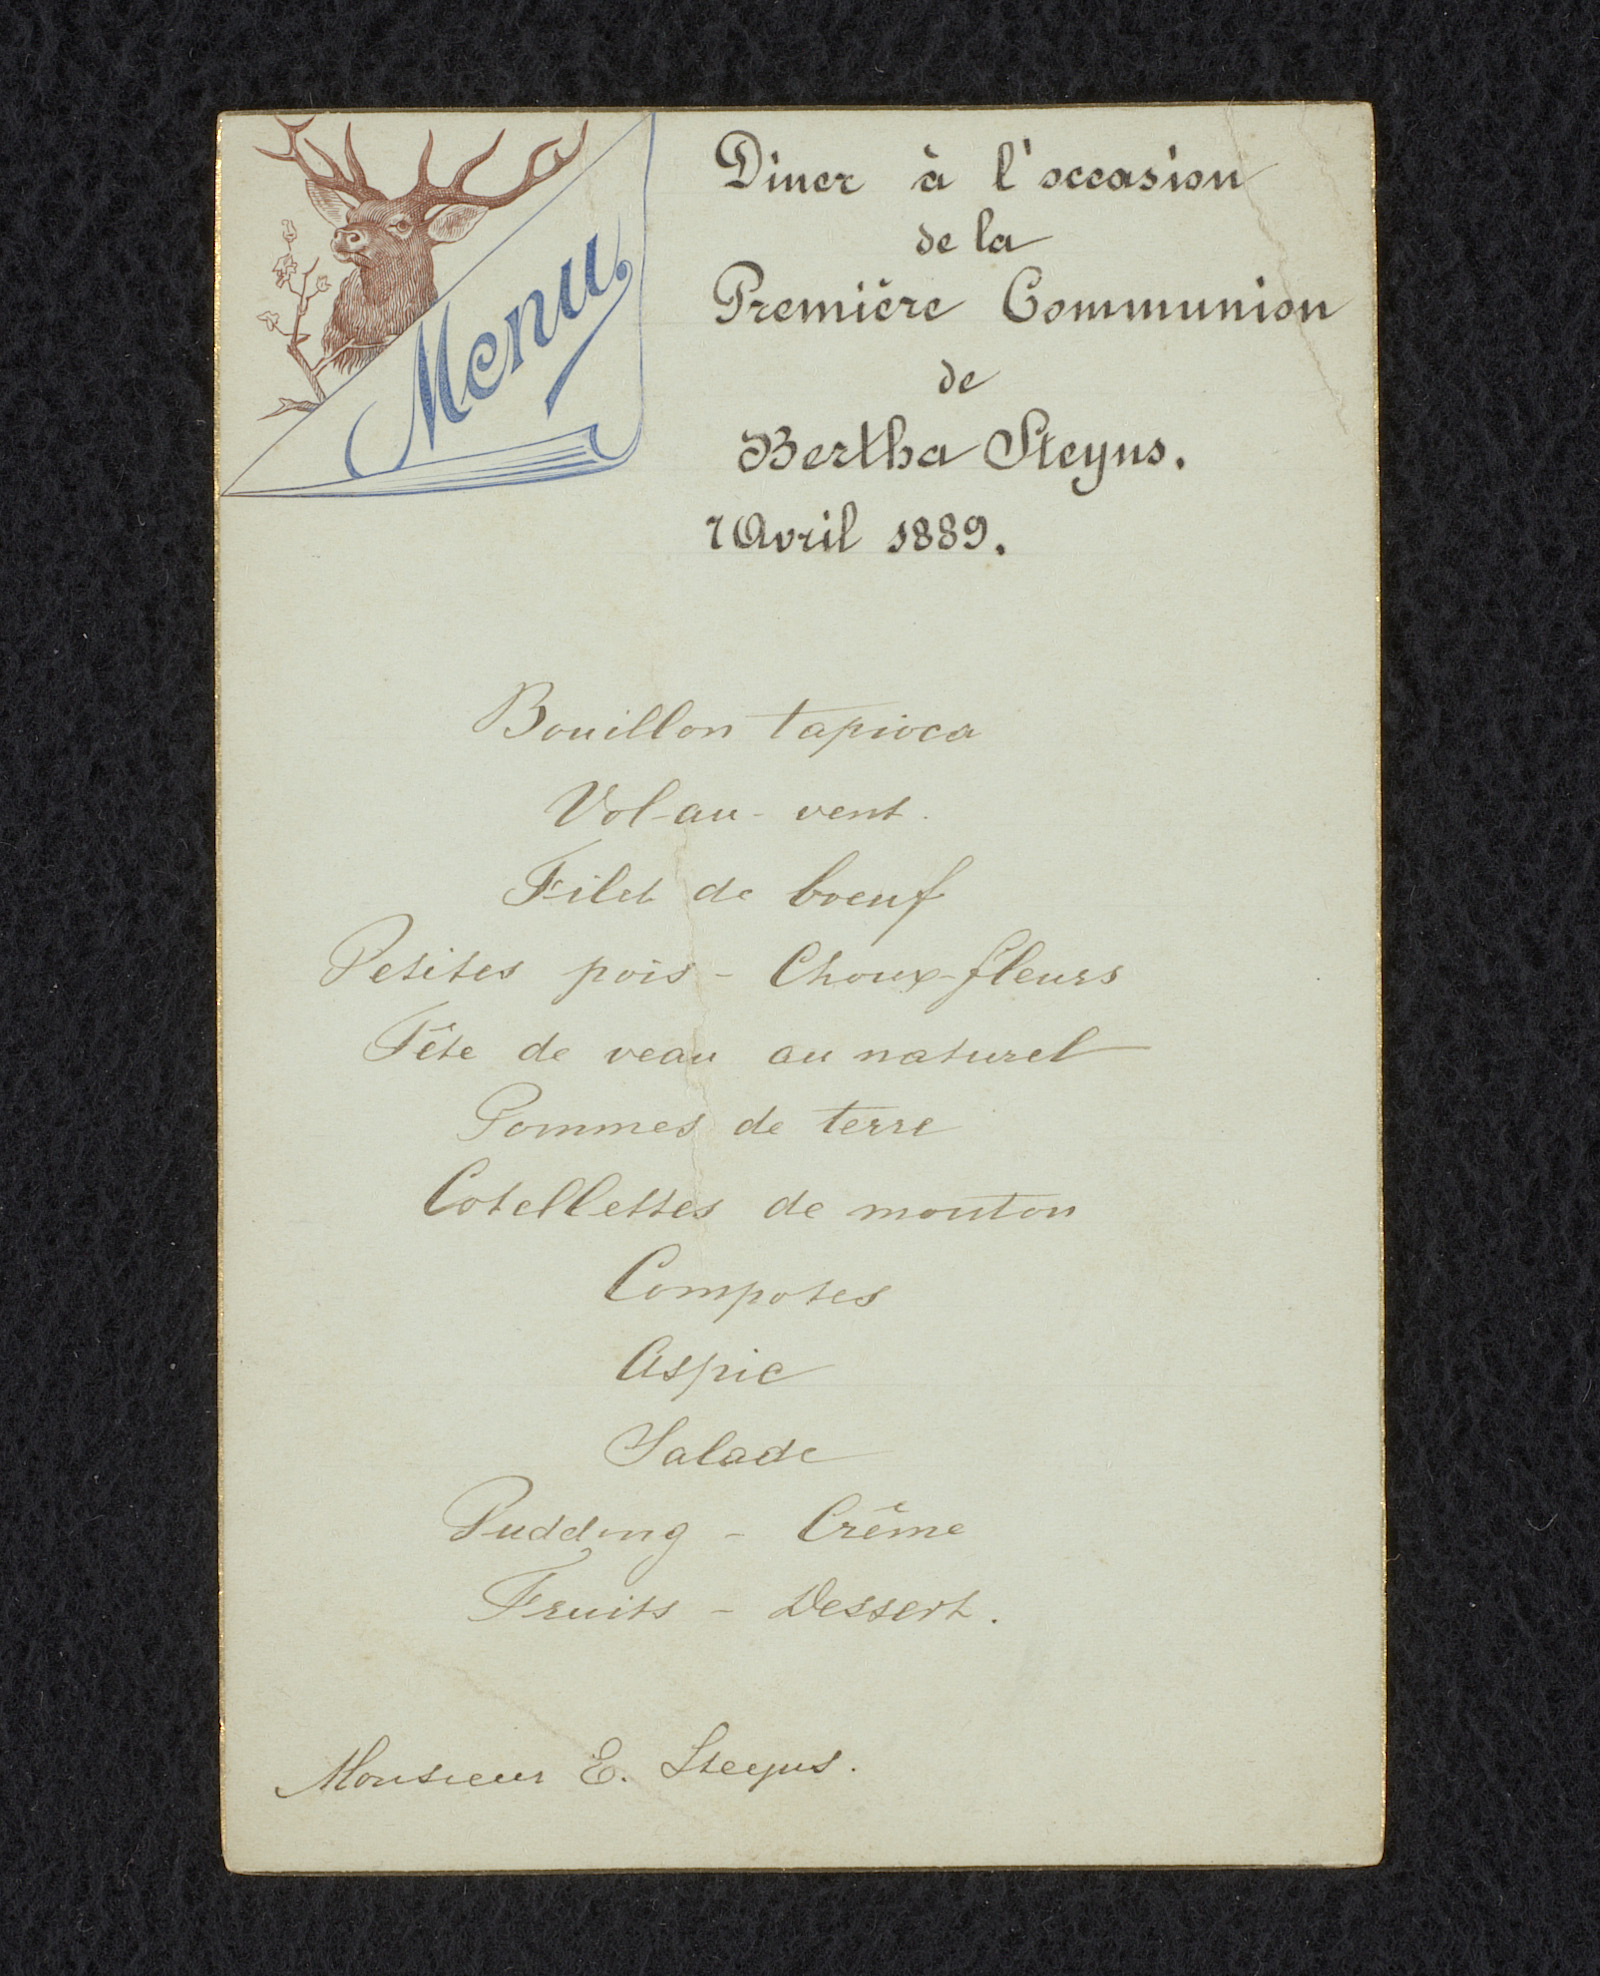 Menu
Diner à l'occasion
de la
Première Communion
de
Bertha Steyns.
7 Avril 1889.
Bouillon tapioca
Vol-au-vent.
Filet de boeuf
Petites pois - Choux-fleurs
Tête de veau au naturel
Pommes de terre
Cotellettes de mouton
Compotes
Aspic
Salade
Pudding - Crême
Fruits - Dessert.
Monsieur E. Steyns.